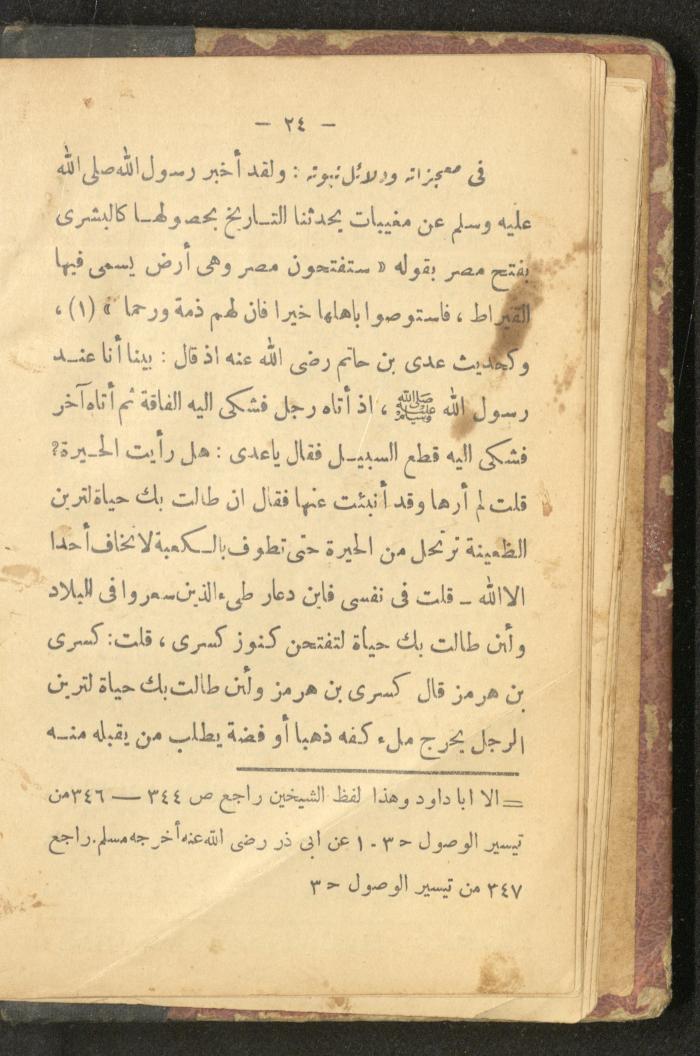 — ٢٤ —
فى معجزاته ودلائل نبوته : ولقد أخبر رسول الله صلى الله
عليه وسلم عن مغيبات يحدثنا التــاريخ بحصولهــا كالبشرى
بفتح مصر بقوله « ستفتحون مصر وهى أرض يسمى فيها
القيراط ، فاستوصوا باهلها خيرا فان لهم ذمة ورحما » (١) ،
وكحديث عدى بن حاتم رضى الله عنه اذ قال : بينا أنا عنــد
رسول الله ﷺ ، اذ أتاه رجل فشكى اليه الفاقة ثم أتاه آخر
فشكى اليه قطع السبيــل فقال ياعدى : هل رأيت الحــيرة؟
قلت لم أرها وقد أنبئت عنها فقال ان طالت بك حياة لترين
الظعينة ترتحل من الحيرة حتى تطوف بالــكعبة لا تخاف أحدا
الا الله ــ قلت فى نفسى فاين دعار طىء الذين سعروا فى البلاد
ولئن طالت بك حياة لتفتحن كنوز كسرى ، قلت : كسرى
بن هرمز قال كسرى بن هرمز ولئن طالت بك حياة لترين
الرجل يخرج ملء كفه ذهبا أو فضة يطلب من يقبله منــه
= الا ابا داود وهذا لفظ الشيخين راجع ص ٣٤٤ — ٣٤٦ من
تيسير الوصول حـ ٣ ـ ١ عن ابى ذر رضى الله عنه أخرجه مسلم. راجع
٣٤٧ من تيسير الوصول حـ ٣